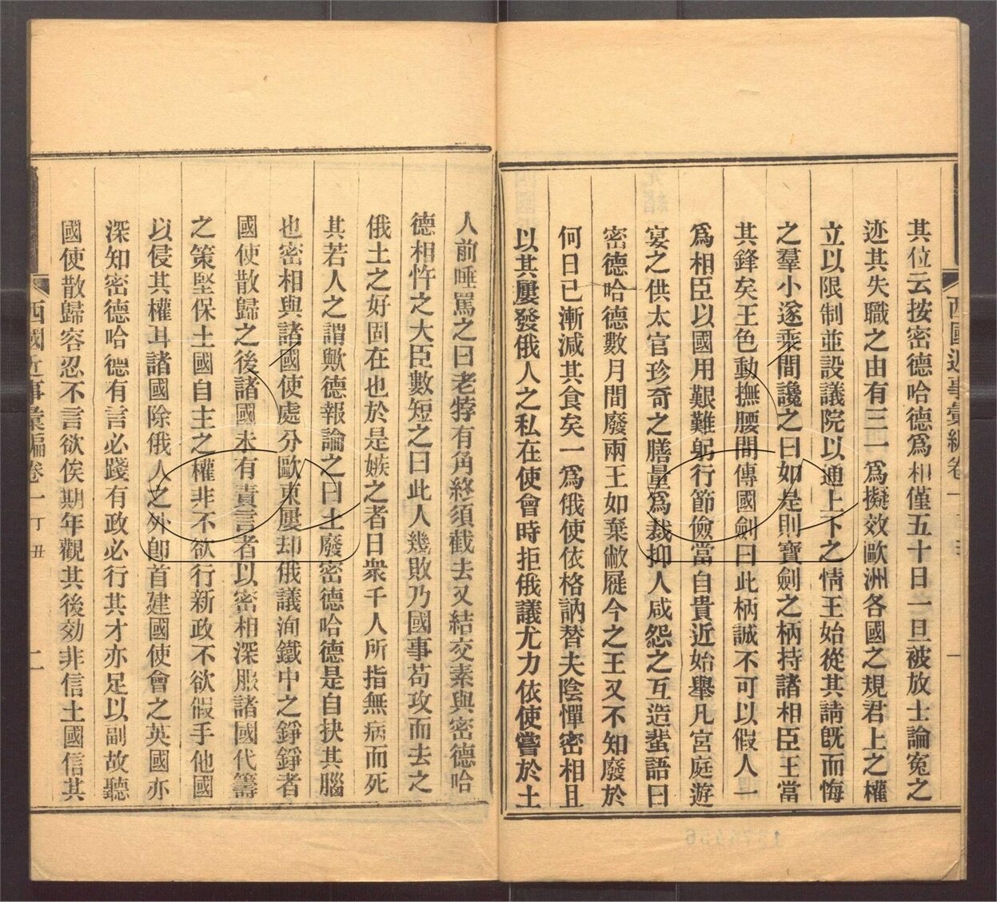 其位云按密德哈德爲相僅五十日一旦被放士論寃之
迹其失職之由有三一爲擬效歐洲各國之規君上之權
立以限制並設議院以通上下之情王始從其請旣而悔
之羣小遂乘間讒之曰如是則寶劍之柄持諸相臣王當
其鋒矣王色動撫腰間傳國劍曰此柄誠不可以假人一
爲相臣以國用艱難躬行節儉當自貴近始舉凡宮庭遊
宴之供太官珍奇之膳量爲裁抑人咸怨之互造蜚語曰
密德哈德數月間廢兩王如棄敝屣今之王又不知廢於
何日已漸減其食矣一爲俄使依格訥替夫陰憚密相且
以其屢發俄人之私在使會時拒俄議尤力依使嘗於土
人前唾罵之曰老悖有角終須截去又結交素與密德哈
德相忤之大臣數短之曰此人幾敗乃國事苟攻而去之
俄土之好固在也於是嫉之者日衆千人所指無病而死
其若人之謂歟德報論之曰土廢密德哈德是自抉其腦
也密相與諸國使處分歐東屢却俄議洵鐵中之錚錚者
國使散歸之後諸國未有責言者以密相深服諸國代籌
之策堅保土國自主之權非不欲行新政不欲假手他國
以侵其權耳諸國除俄人之外卽首建國使會之英國亦
深知密德哈德有言必踐有政必行其才亦足以副故聽
國使散歸容忍不言欲俟期年觀其後効非信土國信其
西國近事彙編卷一 丁丑 二
西國近事彙編卷一